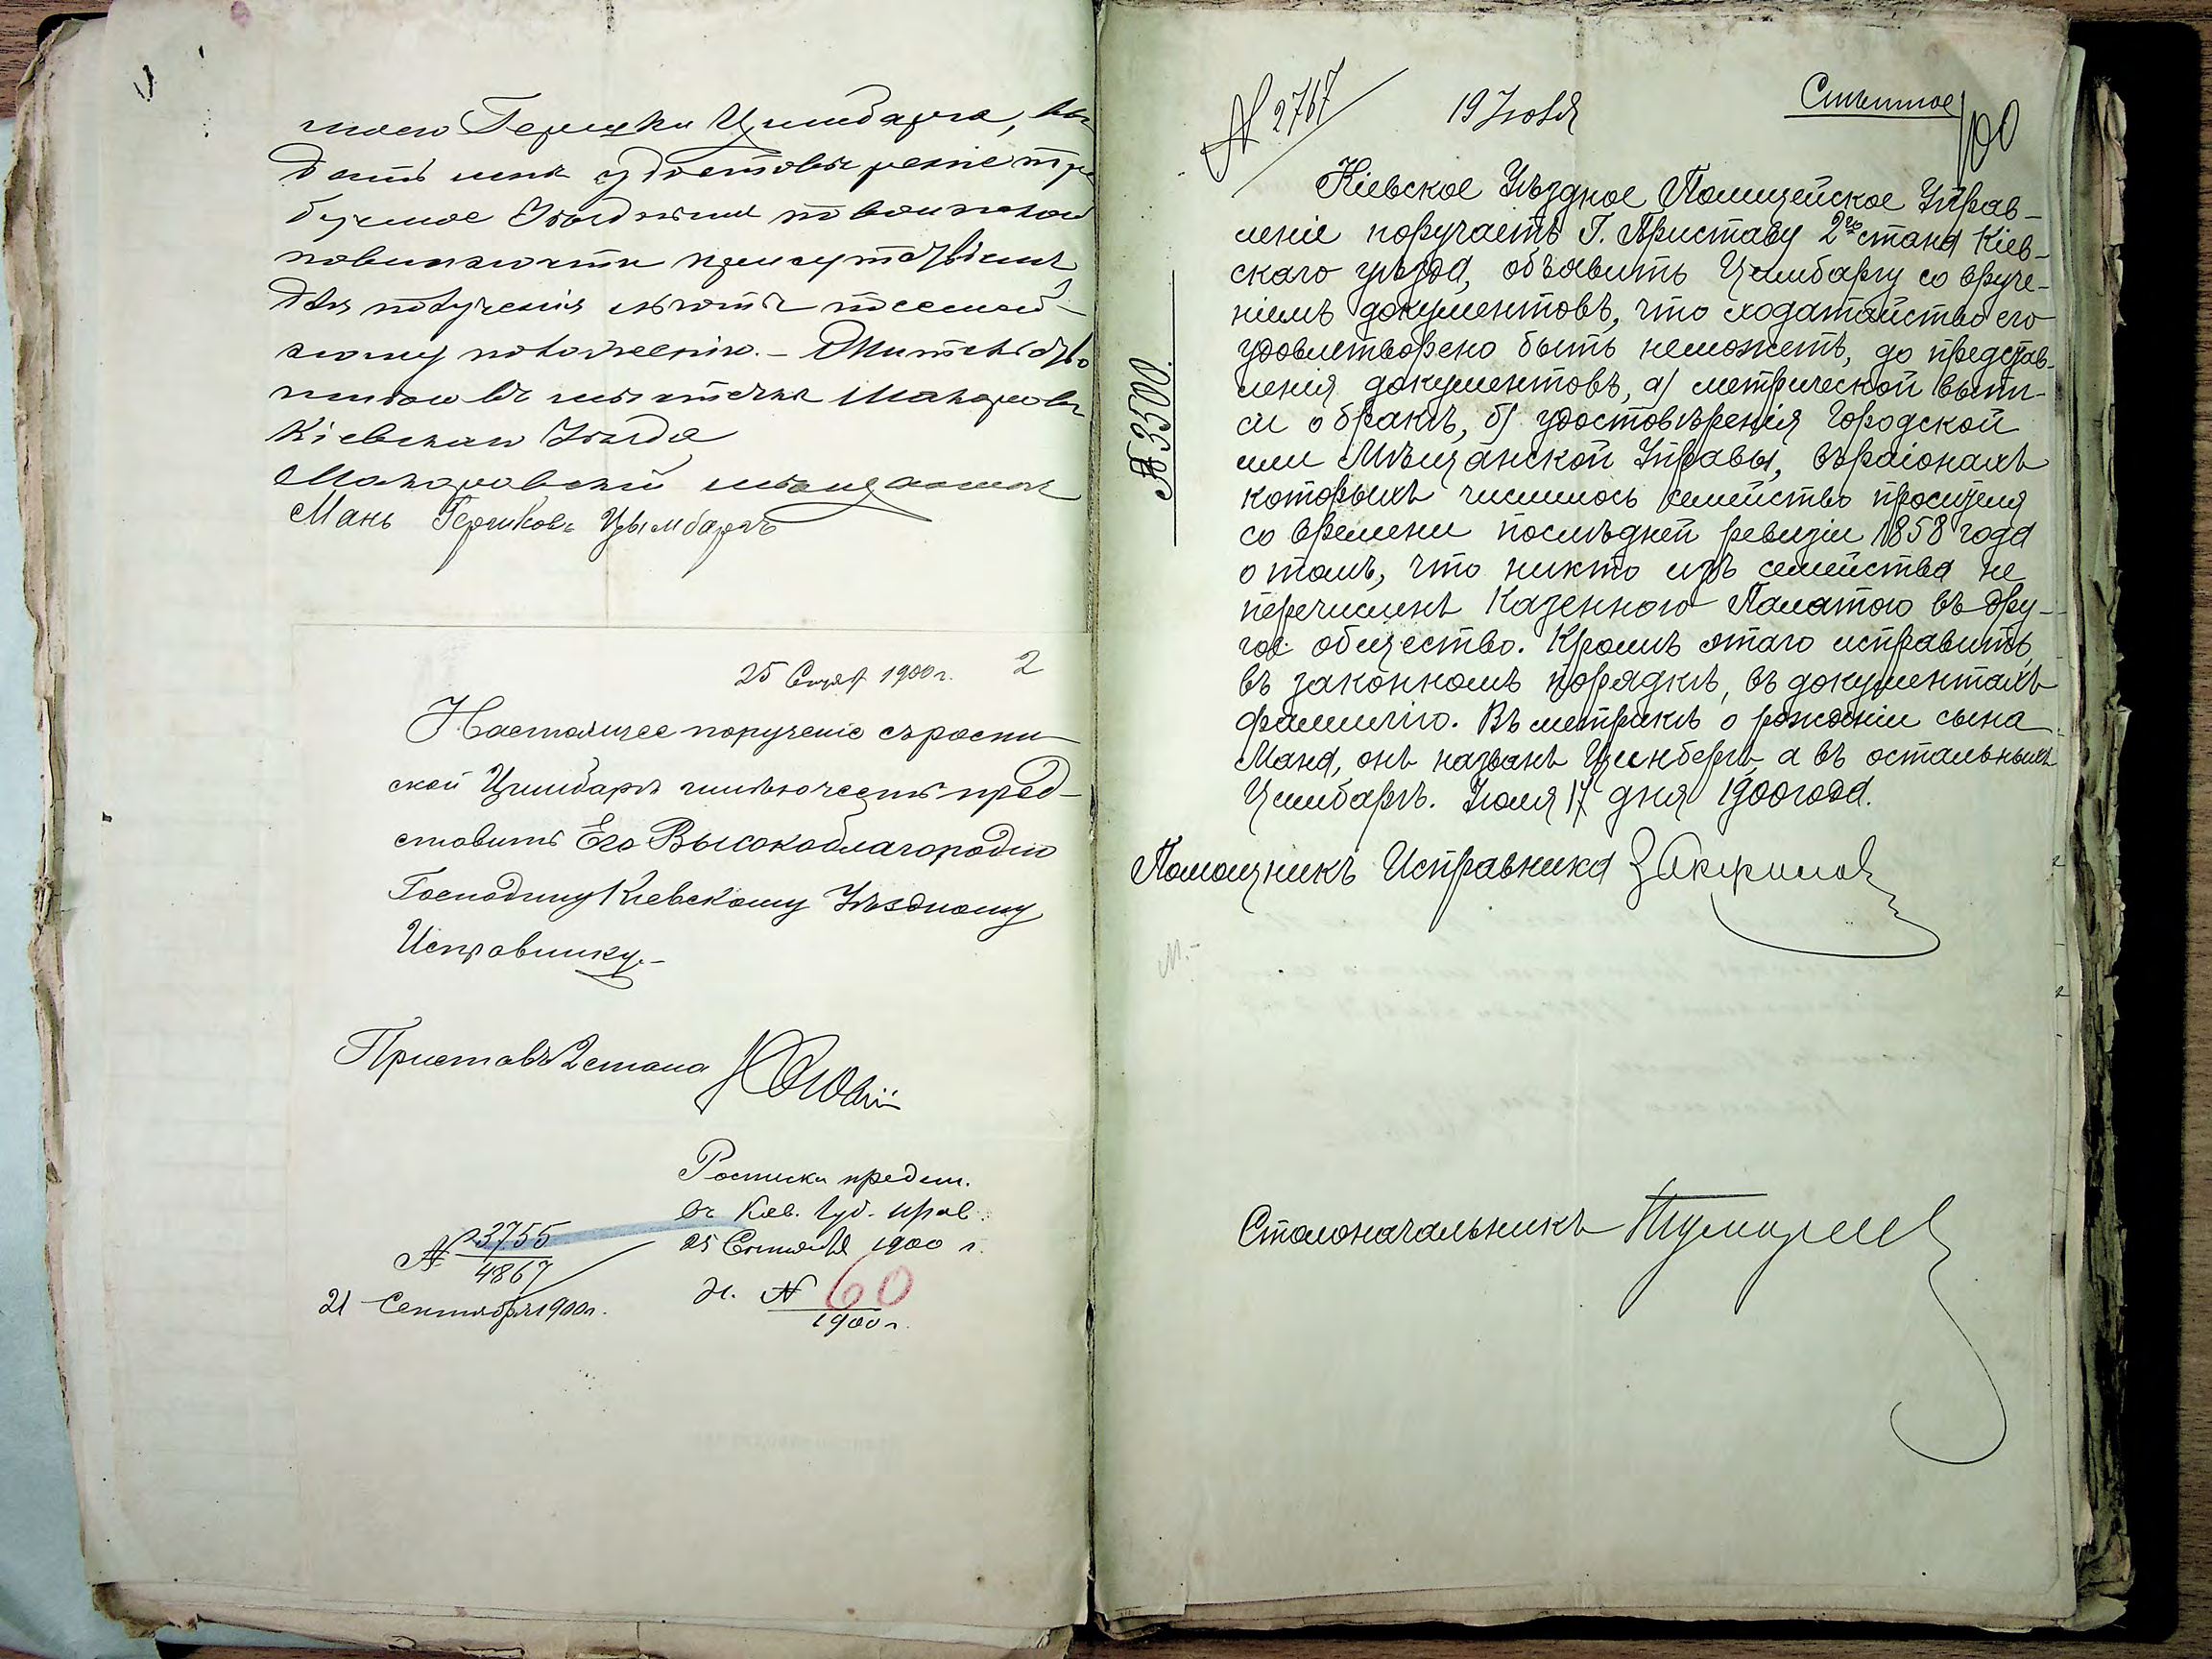 моего Гершки Цимбарга, вы-
дать мнѣ удостовѣреніе тре
буемое Уѣзднымъ по воинской
повинности присутствіемъ
для полученія льготы посемей-
ному положенію. – Жительство
имѣю въ мѣстечкѣ Макаровѣ
Кіевскаго Уѣзда
Макаровскій мѣщанинъ
Мань Гершковъ Цымбаргъ
25 Сентяб 1900 г. 2
Настоящее порученіе съ роспи-
ской Цимбаргъ имѣю честь пред-
ставить Его Высокоблагородію
Господину Кіевскому Уѣздному
Исправнику.–
Приставъ 2 стана
Росписка предст.
въ Кіев. Губ. Прав.
25 Сентября 1900 г.
№ 3755
4867
21 Сентября 1900 г.
№ 60
1900 г.
№ 2767
19 Іюля
Спѣшное
100
№ 3500.
Кіевское Уѣздное Полицейское Управ-
леніе поручаетъ Г. Приставу 2го стана Кіев-
скаго уѣзда, объявить Цимбаргу со вруче-
ніемъ документовъ, что ходатайство его
удовлетворено быть неможетъ, до представ-
ленія документовъ, а) метрической выпи-
си о бракѣ, б) удостовѣренія Городской
или Мѣщанской Управы, въ раіонахъ
которыхъ числилось семейство просителя
со времени послѣдней ревизіи 1858 года
о томъ, что никто изъ семейства не
перечисленъ Казенною Палатою въ дру-
гое общество. Кромѣ этаго исправить
въ законномъ порядкѣ, въ документахъ
фамилію. Въ метрикѣ о рожденіи сына
Маня, онъ названъ Цинбергъ, а въ остальныхъ
Цимбаргъ. Іюля 17 дня 1900 года.
Помощникъ Исправника
Столоначальникъ